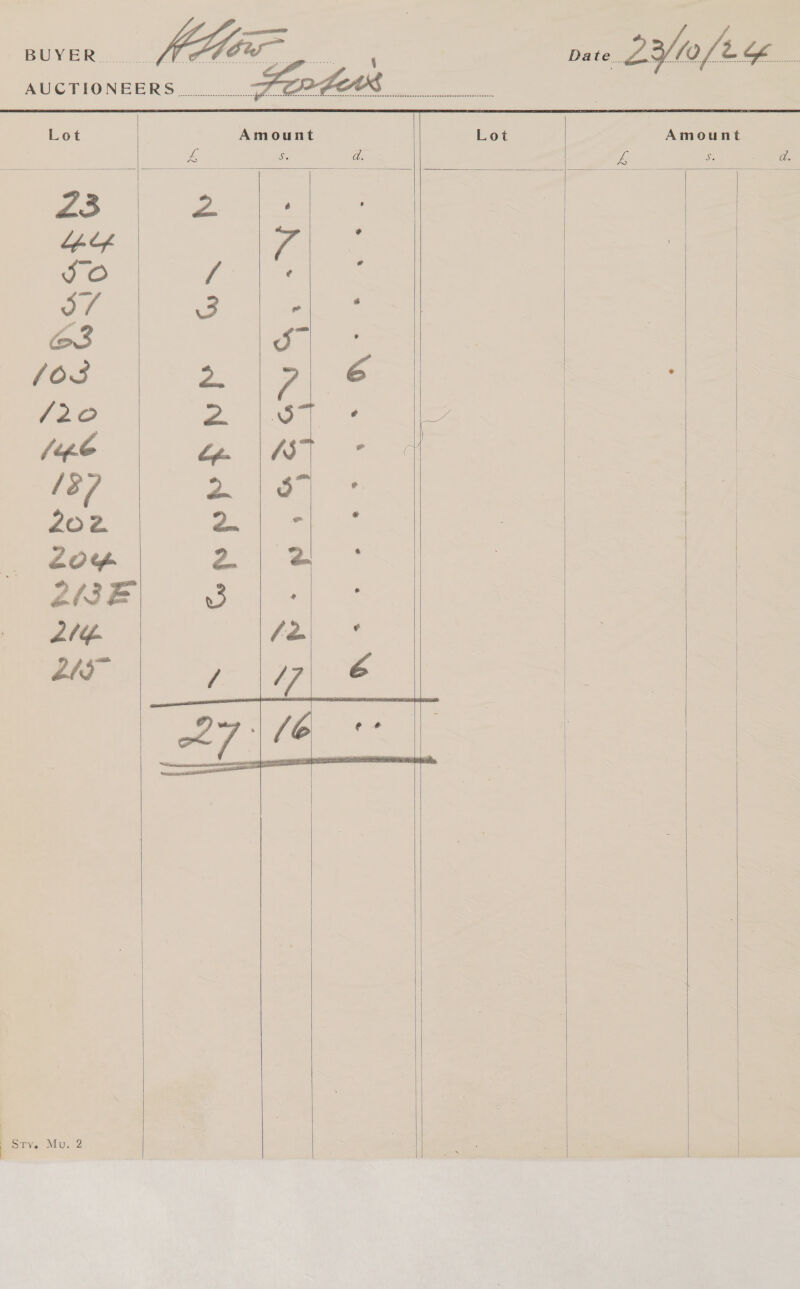 BUYER
Date 23/10/24
AUCTIONEERS Fosters
Lot Amount Lot Amount
£ s. d. £ s. d.
23 2 . .
44 7 .
50 1 . .
57 3 - .
63 5 .
103 2 7 6
120 2 5 .
146 4 15 -
187 2 5 .
202 2 - .
204 2 2 .
213E 3 . .
214 12 .
215 1 17 6
27 16 ..
Sty. Mu. 2